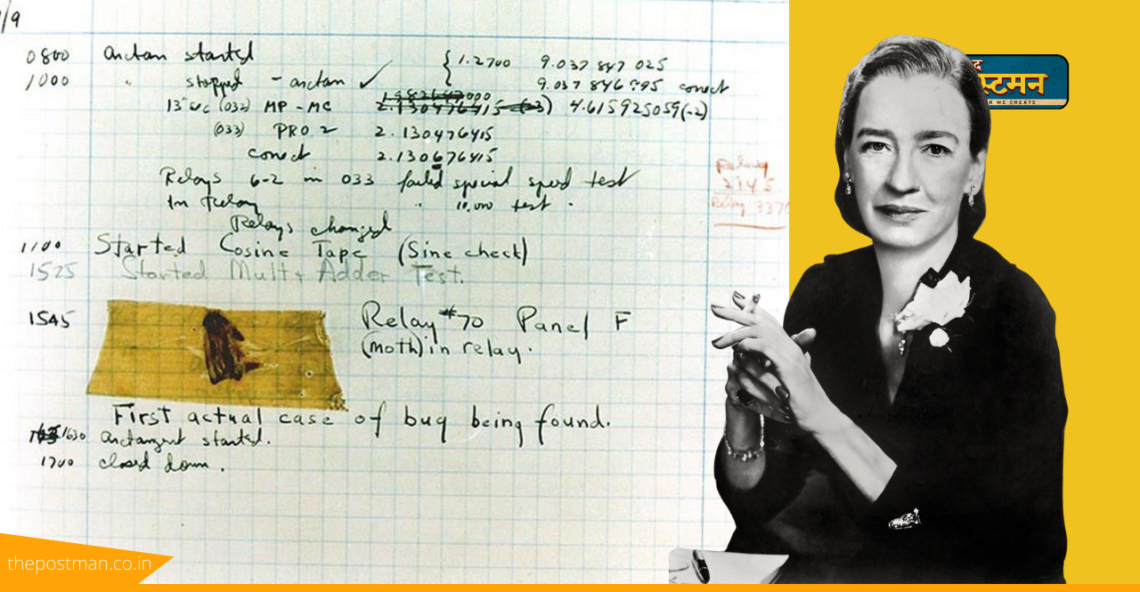 /9
0800 Antan started
1000 " stopped - antan ✓ { 1.2700 9.037 847 025
9.037 846 995 correct
13"uc (032) MP - MC 2.130476415 (-3) 4.615925059(-2)
(033) PRO 2 2.130476415
correct 2.130676415
Relays 6-2 in 033 failed special speed test
in relay " 10,000 test.
Relays changed
Relay
2145
Relay 3370
1100 Started Cosine Tape (Sine check)
1525 Started Mult + Adder Test.
1545 Relay #70 Panel F
(moth) in relay.
First actual case of bug being found.
1630 antangent started.
1700 closed down.
स्टमन
R WE CREATE
thepostman.co.in